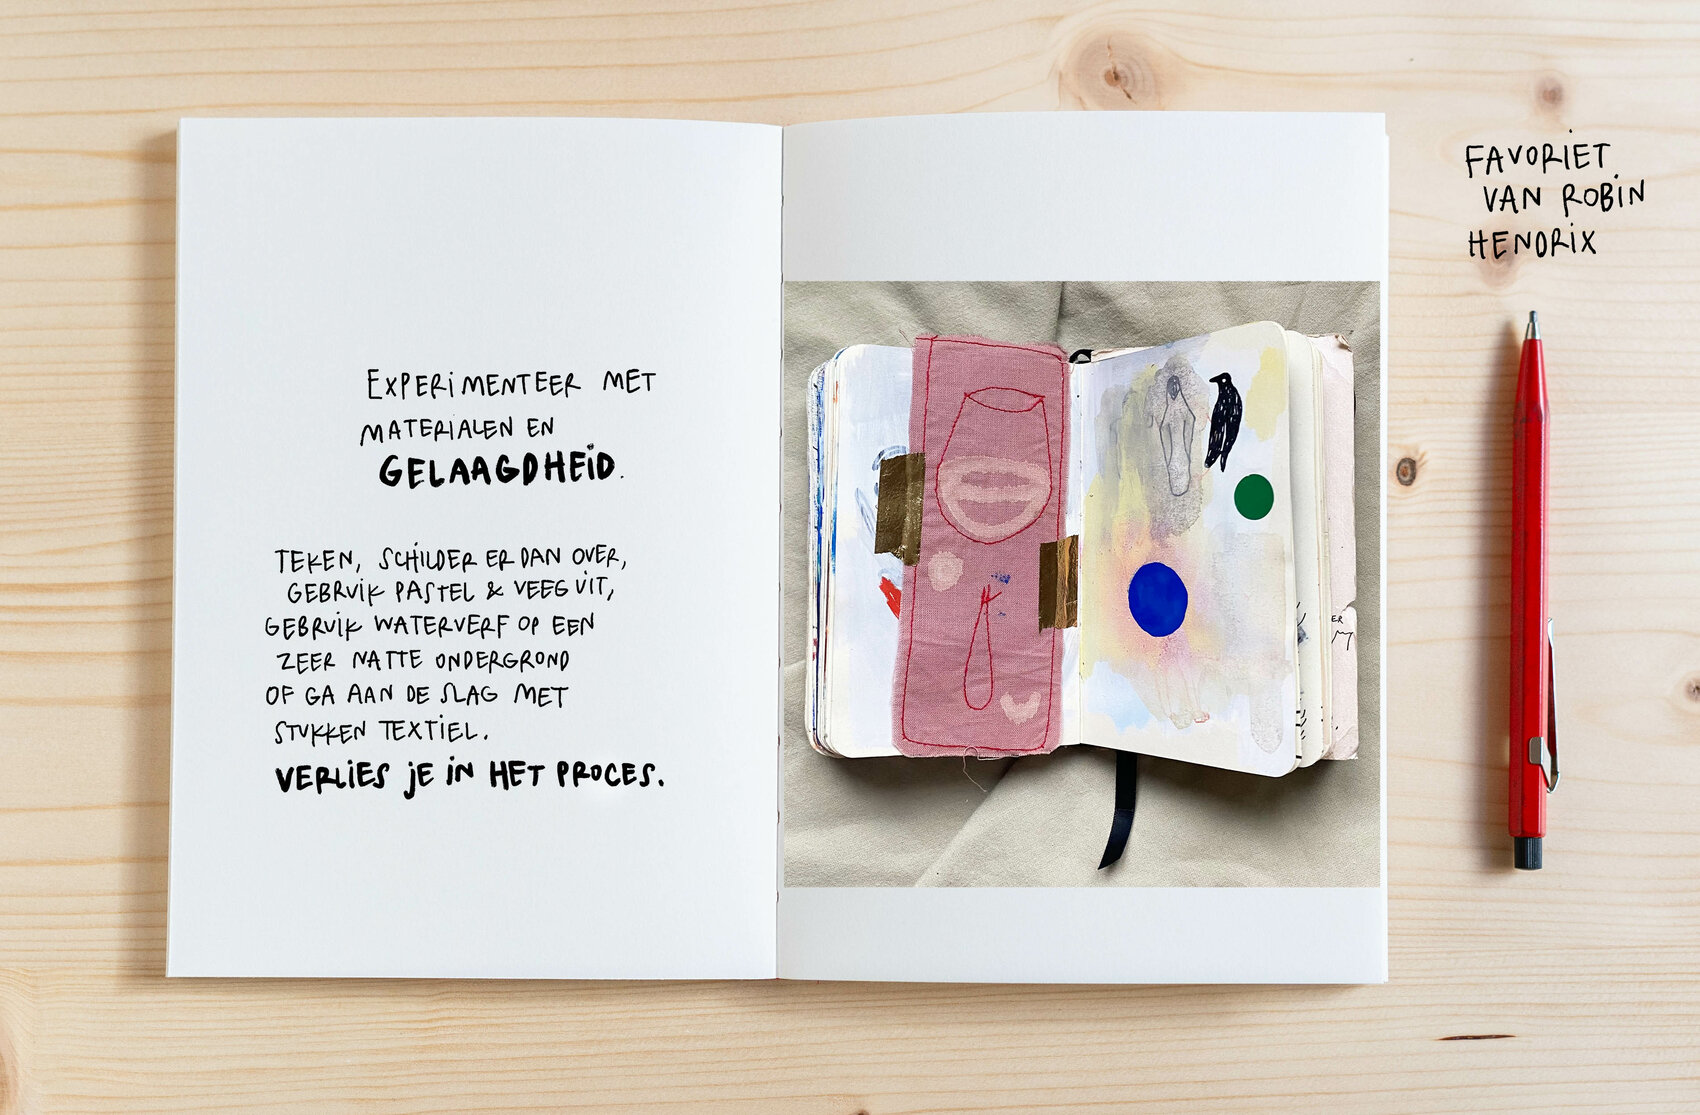 EXPERIMENTEER MET
MATERIALEN EN
GELAAGDHEID.
TEKEN, SCHILDER ER DAN OVER,
GEBRUIK PASTEL & VEEG UIT,
GEBRUIK WATERVERF OP EEN
ZEER NATTE ONDERGROND
OF GA AAN DE SLAG MET
STUKKEN TEXTIEL.
VERLIES JE IN HET PROCES.
FAVORIET
VAN ROBIN
HENDRIX